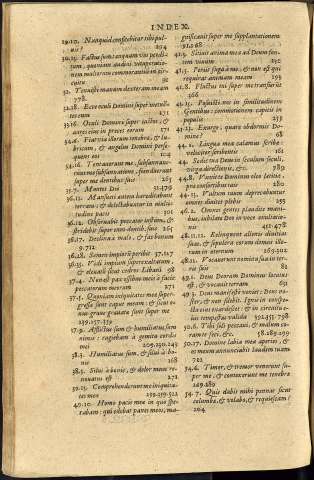 INDEX.
29.10. Nunquid confitebitur tibi pul-
uis? 294
30.13. Factus sum tanquam vas perdi-
tum, quoniam audiui vituperatio-
nem multorum commorantium in cir-
cuitu 92
32. manum dexteram meam
778.
32.18. Ecce oculi Domini super metuen-
tes eum 271
33.16. Oculi Domini super iustos, &
aures eius in preces eorum 271
34.6. Fiat via illorum tenebræ, & lu-
bricum, & angelus Domini perse-
quens eos 104
34.16. Tentauerunt me, subsannaue-
runt me subsannatione, frenduerunt
super me dentibus suis 265
35.7. Montes Dei
36.11. Mansueti autem hereditabunt
terram: & delectabuntur in multi-
tudine pacis 301
36.12. Obseruabit peccator iustum, &
stridebit super eum dentibus suis 265
36.27. Declina à malo, & fac bonum
9.712
36.28. Semen impiorum peribit 37.127
36.35. Vidi impium superexaltatum,
& eleuatum sicut cedros Libani 98
37.4. Non est pax ossibus meis à facie
peccatorum meorum 271
37.5. Quoniam iniquitates meæ super-
gressæ sunt caput meum, & sicut o-
nus graue grauatæ sunt super me
239.257.359
37.9. Afflictus sum & humiliatus sum
nimis: rugiebam à gemitu cordis
mei 209.230.243
38.3. Humiliatus sum, & silui à bo-
nis 268
38.3. Silui à bonis, & dolor meus re-
nouatus est 271
39.13. Comprehenderunt me iniquita-
tes meæ 239.359.512
40.10. Homo pacis meæ in quo spe-
rabam: qui edebat panes meos, ma-
gnificauit super me supplantationem
91.268
41.3. Sitiuit anima mea ad Deum fon-
tem viuum 292
41.5. Periit fuga à me, & non est qui
requirat animam meam 293
41.8. Fluctus tui super me transierunt
266
43.15. Posuisti nos in similitudinem
Gentibus: commotionem capitis in
populis 253
43.23. Exurge: quare obdormis Do-
mine? 68
44.2. Lingua mea calamus scribæ:
velociter scribentis 161
44. Sedes tua Deus in seculum seculi,
virga directionis, &c. 389
44.8. Vnxit te Dominus oleo lætitiæ:
præ consortibus tuis 280
44.13. Vultum tuum deprecabuntur
omnes diuites plebis 255
46.2. Omnes gentes plaudite mani-
bus, iubilate Deo in voce exultatio-
nis 451.478
48.11.12. Relinquent alienis diuitias
suas, & sepulcra eorum domus illo-
rum in æternum 169.502
48.12. Vocauerunt nomina sua in ter-
ris suis 82
49.1. Deus Deorum Dominus locutus
est, & vocauit terram 691
49.3. Deus manifestè veniet: Deus no-
ster, & non silebit. Ignis in conspe-
ctu eius exardescet: & in circuitu e-
ius tempestas valida 392.455.758
50.6. Tibi soli peccaui, & malum co-
ram te feci, &c. 58.289.299
50.17. Domine labia mea aperies, &
os meum annunciabit laudem tuam
722
54.6. Timor, & tremor venerunt su-
per me: & contexerunt me tenebræ
269.289
54.7. Quis dabit mihi pennas sicut
columbæ, & volabo, & requiescam?
204